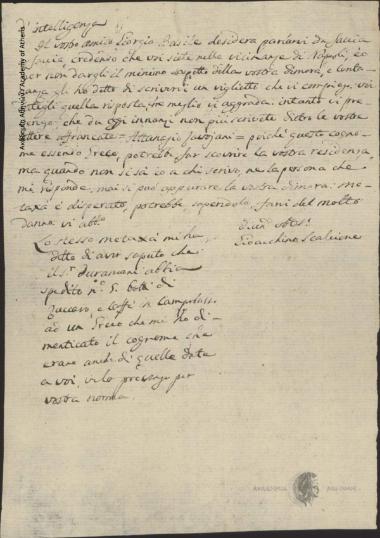 d'intelligenza
Il vostro amico Giorgio Basile desidera parlarvi da faccia
a faccia, credendo che voi siete nelle vicinanze di Napoli, io
per non dargli il minimo sospetto della vostra dimora, e lonta-
nanza gli ho detto di scrivervi un viglietto che vi compiego, voi
fategli quella risposta che meglio vi aggrada: intanto vi pre-
vengo, che da oggi innanzi non più scrivete dietro le vostre
lettere affrancate = Attanagio = poiché questo cogno-
me essendo Greco, potrebbe far scovrire la vostra residenza,
ma quando non si sà, co a chi scrivo, ne la persona che
mi risponde, mai si può appurare la vostra dimora: Me-
taxà è disperato, potrebbe, sapendolo, farvi del molto
danno vi abb.
Lo stesso metaxà mi ha
detto di aver saputo che
il s. abbia
spedito n. 5. botti di
Zuccaro, e Caffè
ad un Greco che mi ho di-
menticato il cognome che
erano anche di quelle date
a voi, ve lo prevengo per
vostra norma.
Gioacchino Scalcione
Αναγνώστου Academy of Athens